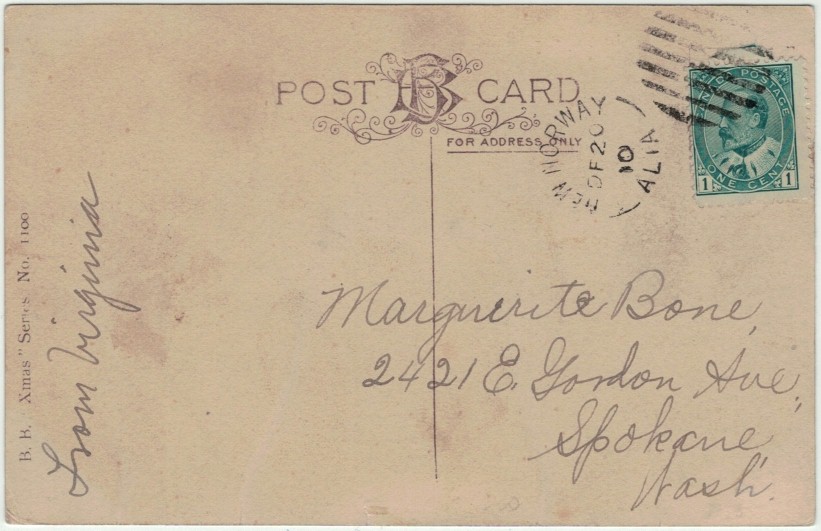 POST CARD
FOR ADDRESS ONLY
NEW NORWAY
20
10
ALTA
POSTAGE
ONE CENT
1 1
Marguerite Bone,
2421 E. Gordon Ave,
Spokane,
Wash.
From Virginia
B. B. Xmas" Series No. 1100